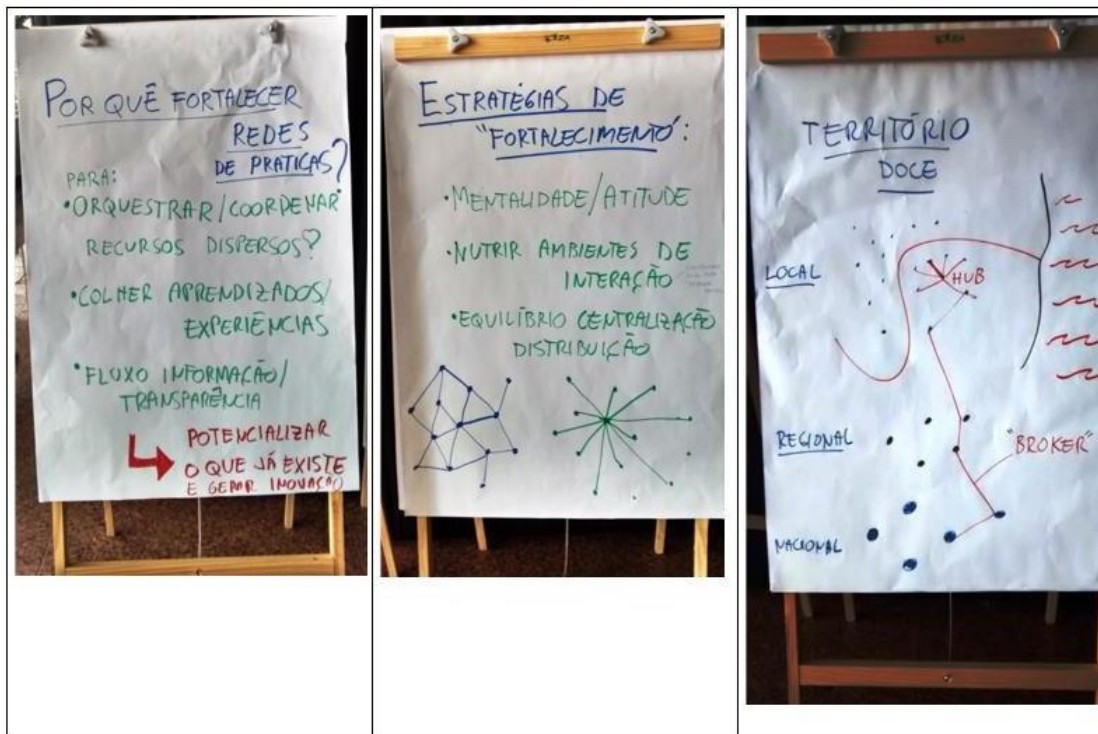 POR QUÊ FORTALECER
REDES
DE PRATICAS?
PARA:
• ORQUESTRAR/COORDENAR
RECURSOS DISPERSOS?
• COLHER APRENDIZADOS/
EXPERIÊNCIAS
• FLUXO INFORMAÇÃO/
TRANSPARÊNCIA
POTENCIALIZAR
O QUE JÁ EXISTE
E GERAR INOVAÇÃO
ESTRATÉGIAS DE
"FORTALECIMENTO":
• MENTALIDADE/ATITUDE
• NUTRIR AMBIENTES DE
INTERAÇÃO
• EQUILÍBRIO CENTRALIZAÇÃO
DISTRIBUIÇÃO
TERRITÓRIO
DOCE
LOCAL
HUB
REGIONAL
"BROKER"
NACIONAL